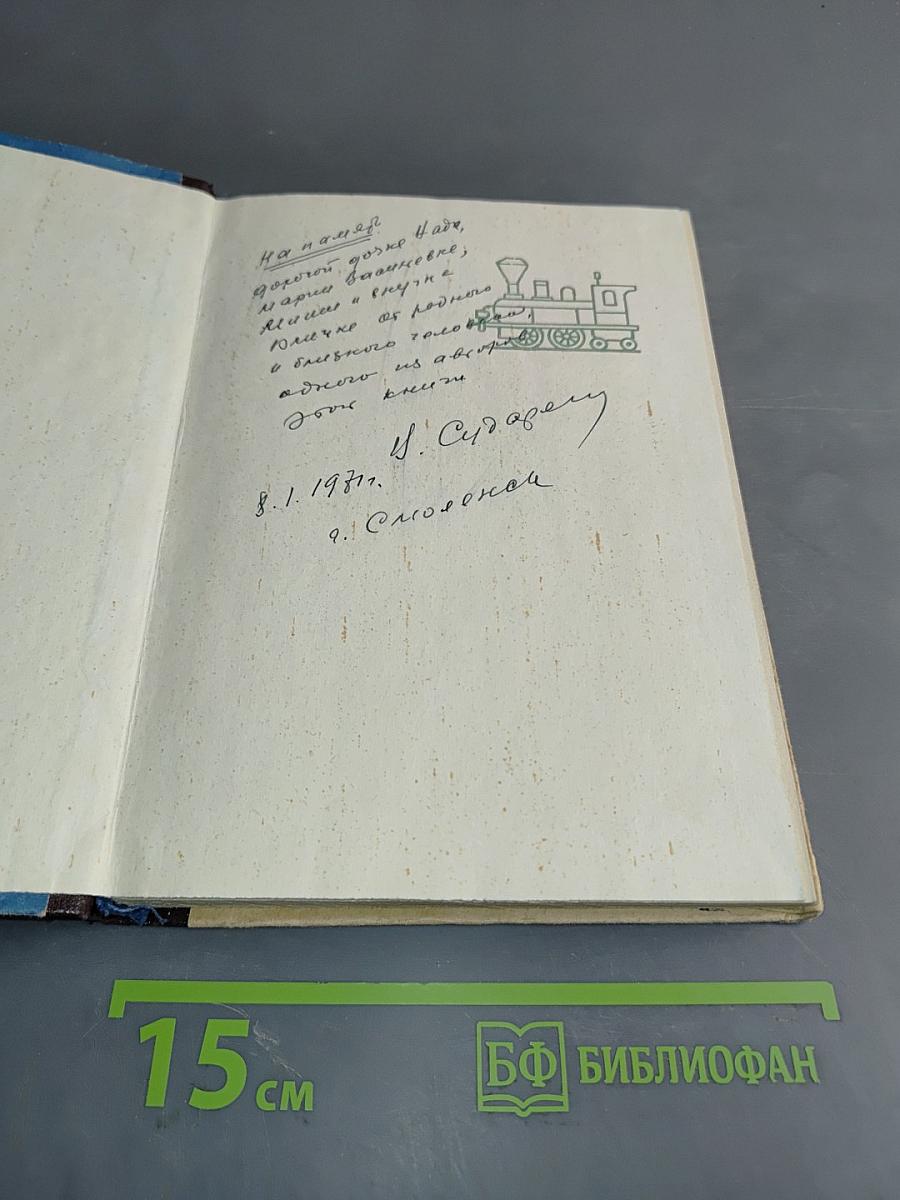 На память
дорогой дочке Наде,
Марии Вашновне,
Мише и внучке
Юличке от родного
и близкого человека,
одного из авторов
этой книги
И. Сударен
8.1.1971г.
г. Смоленск
15 см
БФ БИБЛИОФАН